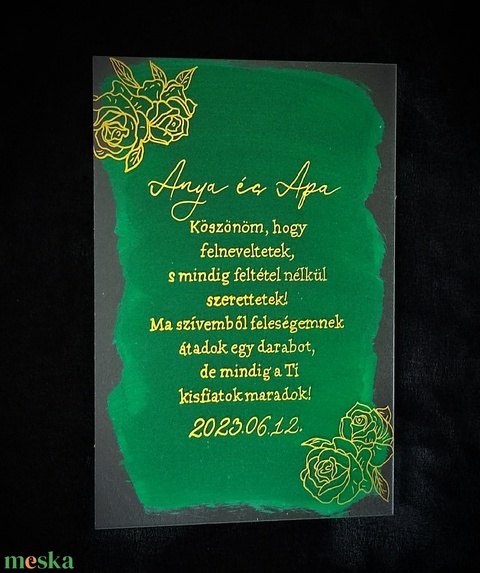 Anya és Apa
Köszönöm, hogy
felneveltetek,
s mindig feltétel nélkül
szerettetek!
Ma szívemből feleségemnek
átadok egy darabot,
de mindig a Ti
kisfiatok maradok!
2023.06.12.
meska